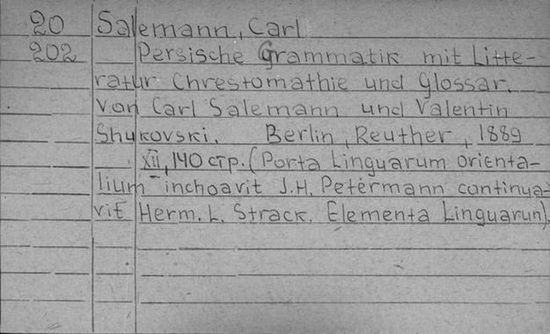 20 Salemann, Carl
202 Persische Grammatik mit Litte-
ratur Chrestomathie und Glossar.
von Carl Salemann und Valentin
Shukovski. Berlin, Reuther, 1889
XII, 140 стр. (Porta Linguarum orienta-
lium inchoavit J.H. Petermann continua-
vit Herm. L. Strack. Elementa Linguarun).